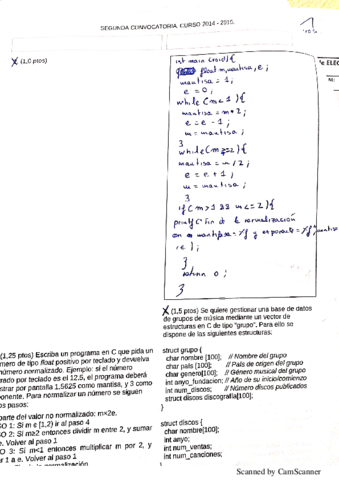 SEGUNDA CONVOCATORIA. CURSO 2014 - 2015.
1
(1,0 ptos)
int main (void){
float m, mantisa, e;
mantisa = 1;
e = 0;
while (m < 1){
mantisa = m * 2;
e = e - 1;
m = mantisa;
}
while (m >= 2){
mantisa = m / 2;
e = e + 1;
m = mantisa;
}
if (m > 1 && m <= 2){
printf ("Fin de la normalización
con mantisa = %f y exponente = %f", mantisa
, e );
}
return 0;
}
(1,25 ptos) Escriba un programa en C que pida un
número de tipo float positivo por teclado y devuelva
número normalizado. Ejemplo: si el número
trado por teclado es el 12,5, el programa deberá
strar por pantalla 1,5625 como mantisa, y 3 como
ponente. Para normalizar un número se siguen
os pasos:
parte del valor no normalizado: m×2e.
SO 1: Si m є [1,2) ir al paso 4
O 2: Si m≥2 entonces dividir m entre 2, y sumar
e. Volver al paso 1
O 3: Si m<1 entonces multiplicar m por 2, y
r 1 a e. Volver al paso 1
(1,5 ptos) Se quiere gestionar una base de datos
de grupos de música mediante un vector de
estructuras en C de tipo "grupo". Para ello so
dispone de las siguientes estructuras:
struct grupo {
char nombre [100]; // Nombre del grupo
char pais [100]; // País de origen del grupo
char genero[100]; // Género musical del grupo
int anyo_fundacion; // Año de su inicio/comienzo
int num_discos; // Número discos publicados
struct discos discografia[100];
};
struct discos {
char nombre[100];
int anyo;
int num_ventas;
int num_canciones;
Scanned by CamScanner